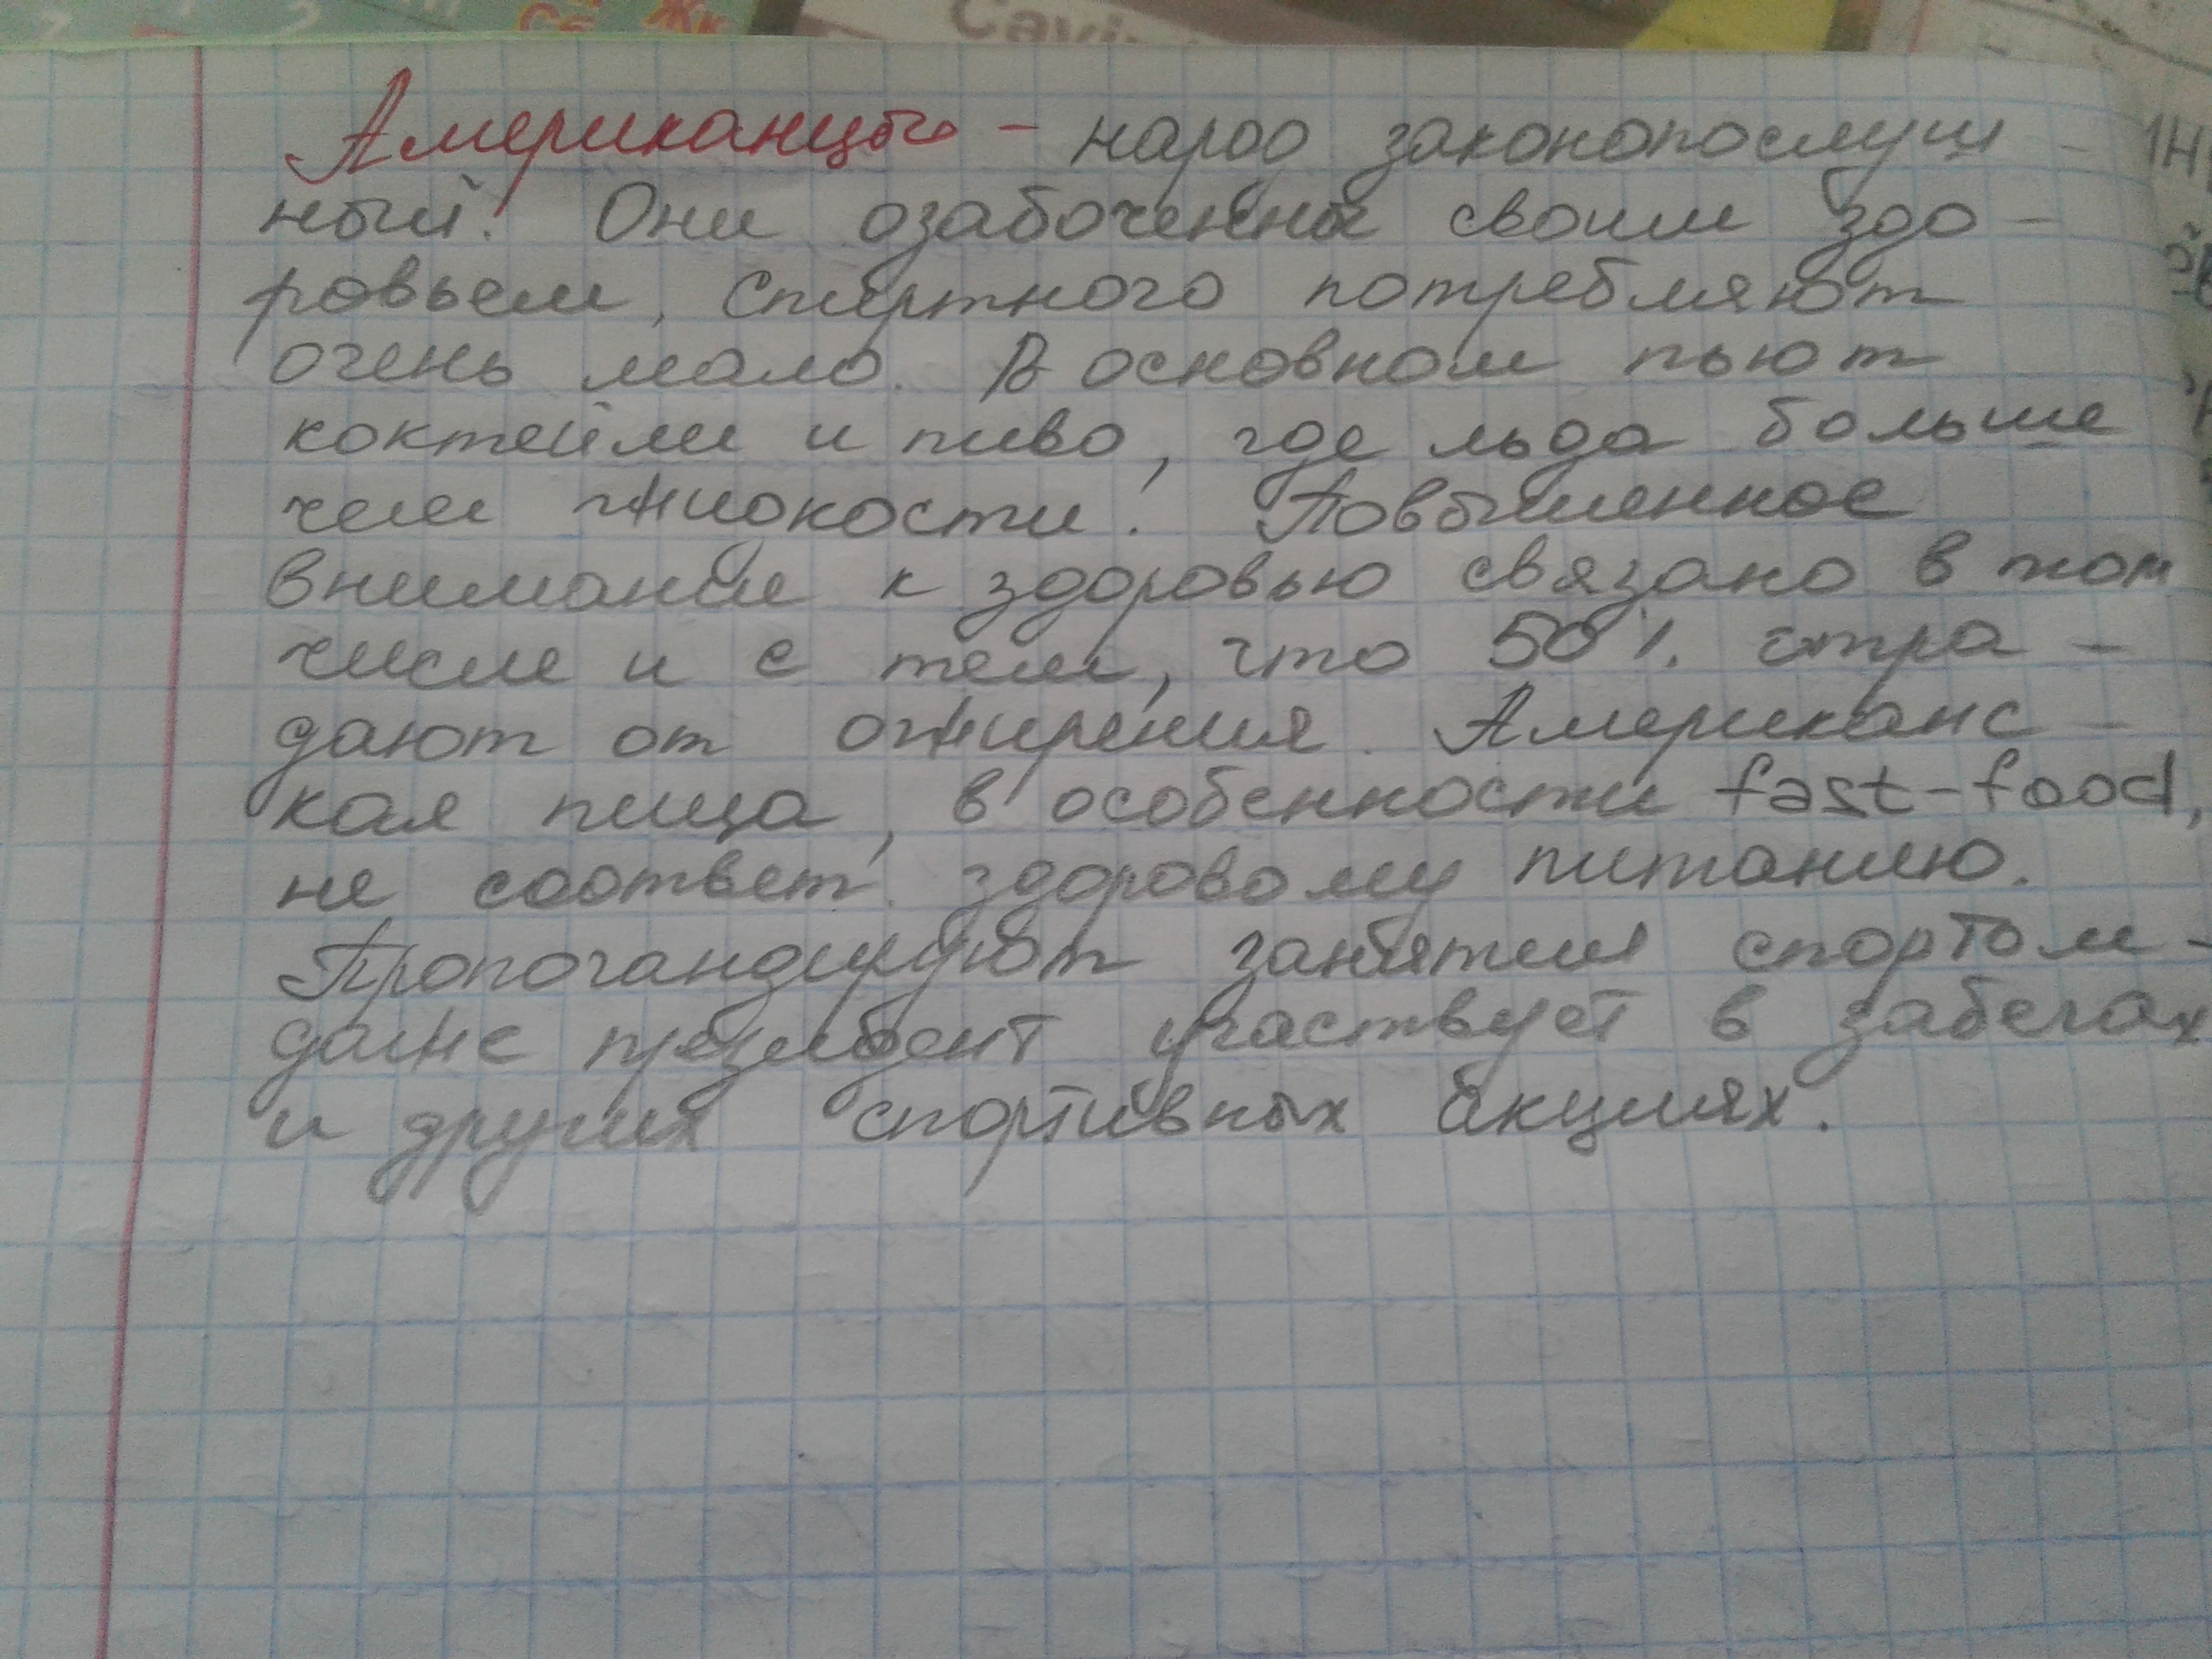 Сб Жк
Cavin
Американцы - народ законопослуш -
ный. Они озабоченны своим здо -
ровьем, спиртного потребляют
очень мало. В основном пьют
коктейли и пиво, где льда больше
чем жидкости. Повышенное
внимание к здоровью связано в том
числе и с тем, что 50%. стра -
дают от ожирения. Американс -
кая пища, в особенности fast-food,
не соответ. здоровому питанию.
Пропогандируют занятия спортом -
даже президент участвует в забегах
и других спортивных акциях.